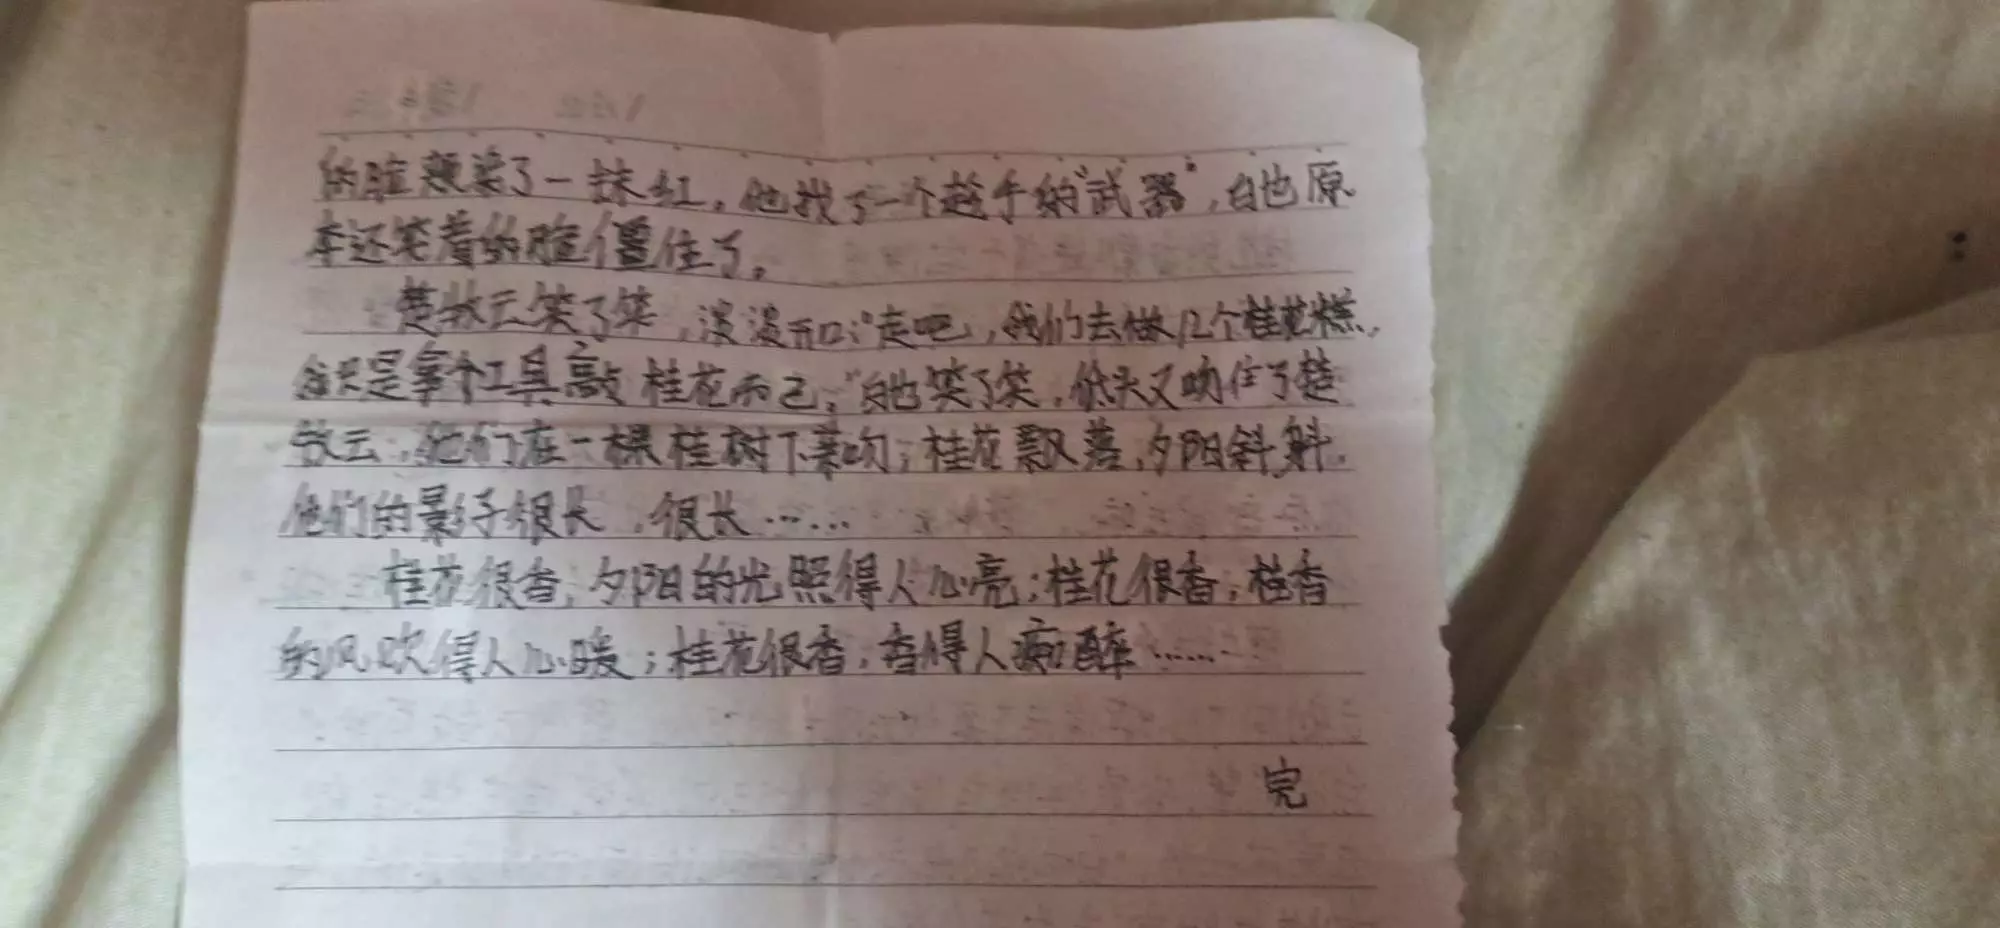 的脸颊染了一抹红。他找了一个趁手的“武器”,白也原
本还笑着的脸僵住了。
楚牧云笑了笑,淡淡开口:“走吧,我们去做12个桂花糕,
我只是拿个工具敲桂花而已。”白也笑了笑,低头又吻住了楚
牧云,他们在一棵桂树下亲吻;桂花飘落,夕阳斜射,
他们的影子很长,很长……
桂花很香,夕阳的光照得人心亮;桂花很香,桂香
的风吹得人心暖;桂花很香,香得人痴醉……
完